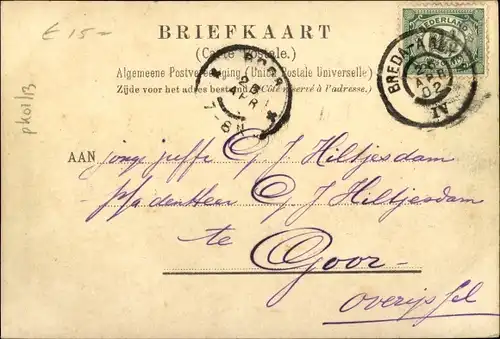 € 15-
BRIEFKAART
(Carte Postale.)
Algemeene Postvereeniging (Union Postale Universelle)
Zijde voor het adres bestemd (Côté réservé à l'adresse.)
NEDERLAND
BREDA-
APR
02
IV
GOOR
APR
7-8N
pk01/13
AAN jonge juffr. G J Hiltjesdam
p/a den Heer G J Hiltjesdam
te
Goor
Overijssel